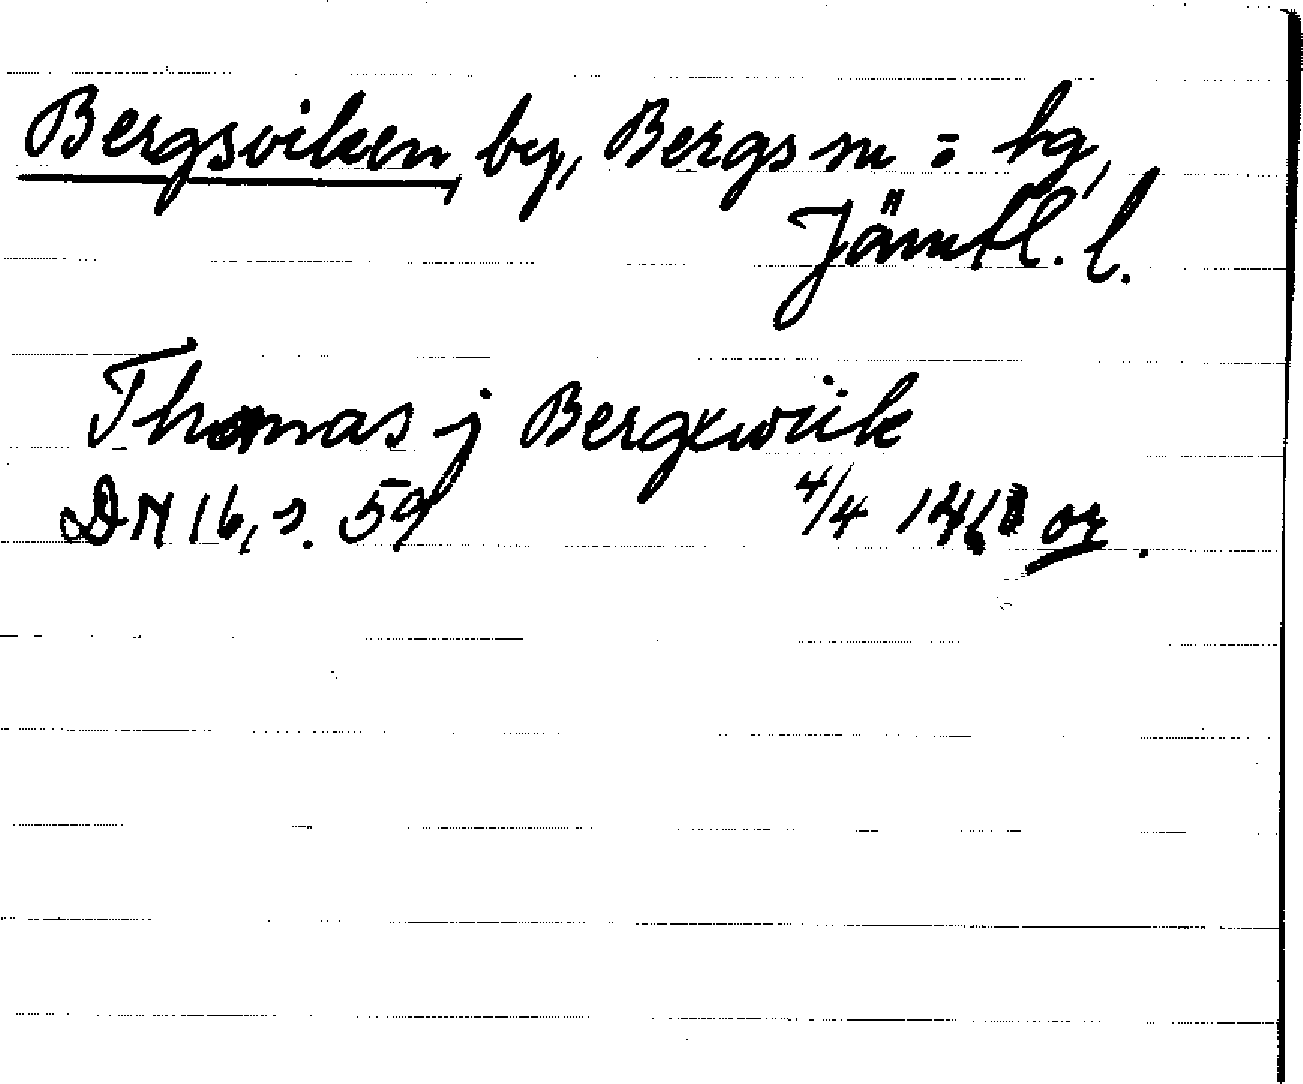 Bergsviken, by, Bergs sn = hg,
Jämtl. l.
Thomas j Bergxwiik
DN 16, s. 59 4/4 or.